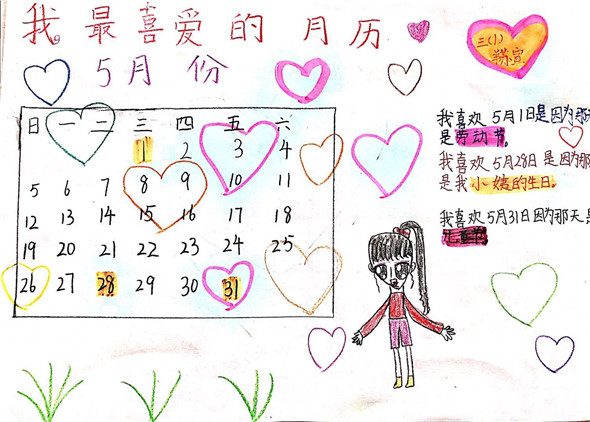 我最喜爱的月历
三(1)
5月份
日 一 二 三 四 五 六
1 2 3 4
5 6 7 8 9 10 11
12 13 14 15 16 17 18
19 20 21 22 23 24 25
26 27 28 29 30 31
我喜欢5月1日是因为那
是劳动节。
我喜欢5月28日是因为那
是我小姨的生日。
我喜欢5月31日因为那天是
儿童节